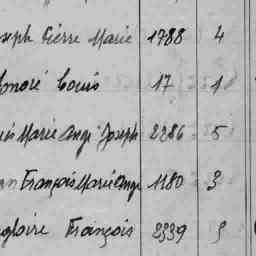 seph Pierre Marie 1788 4
onoré Louis 17 1
uis Marie Ange Joseph 2286 5
an François Marie Ange 1180 3
gloire François 2339 5